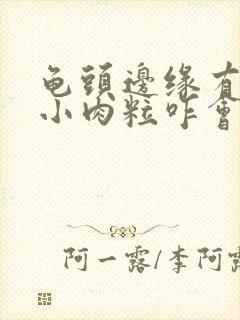 龟頭邊缘有
小肉粒咋會
阿一露/李阿露